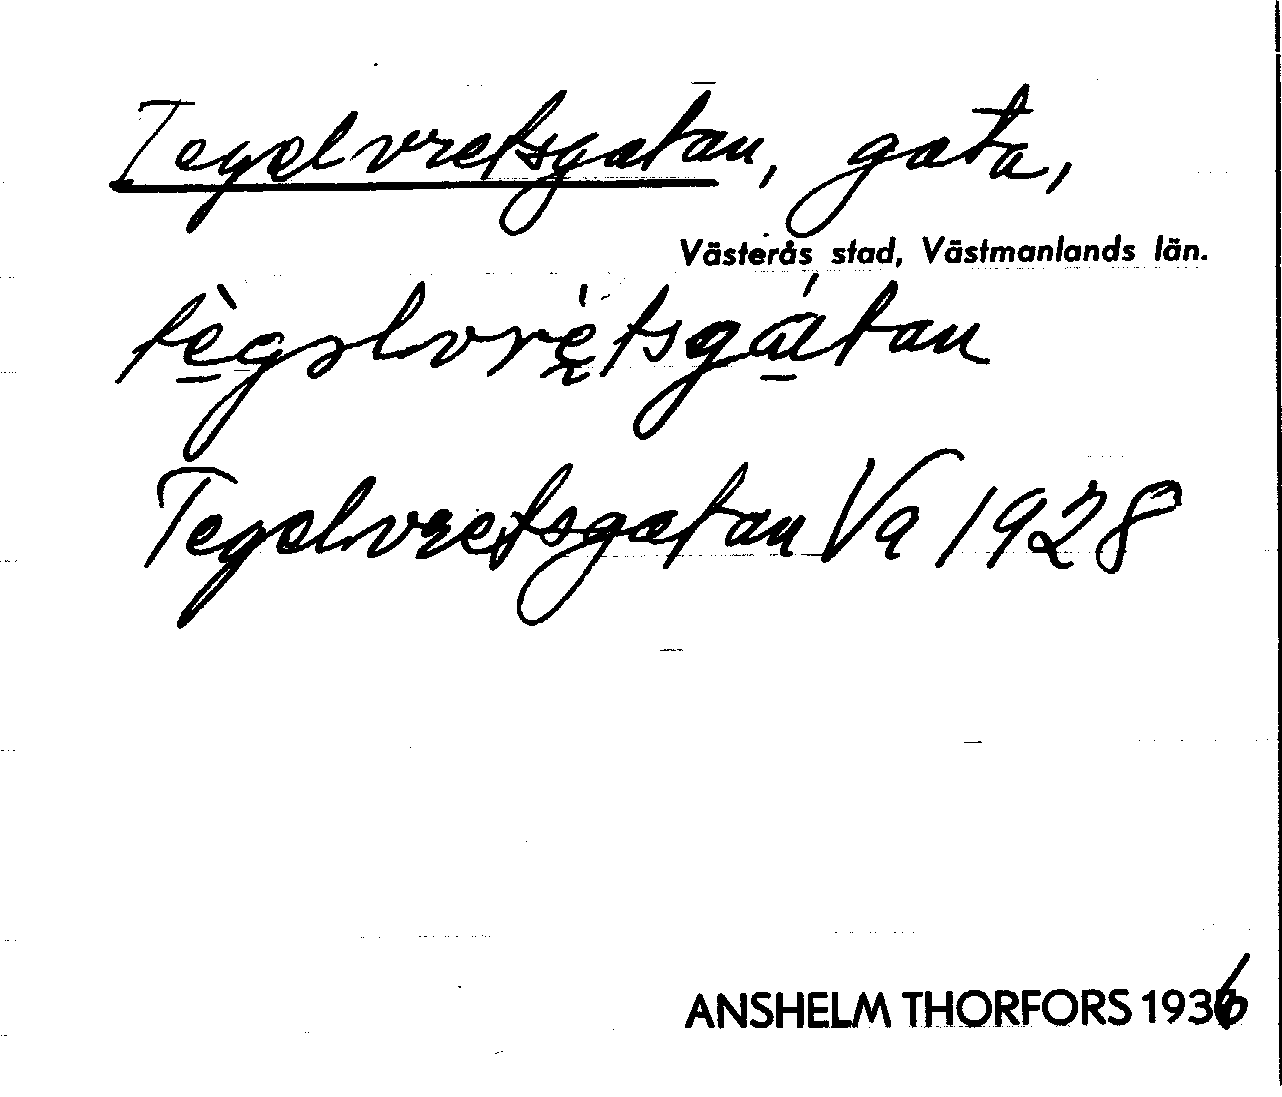 Tegelvretsgatan, gata,
Västerås stad, Västmanlands län.
tègəlvrètsgátan
Tegelvretsgatan Va 1928
ANSHELM THORFORS 1936